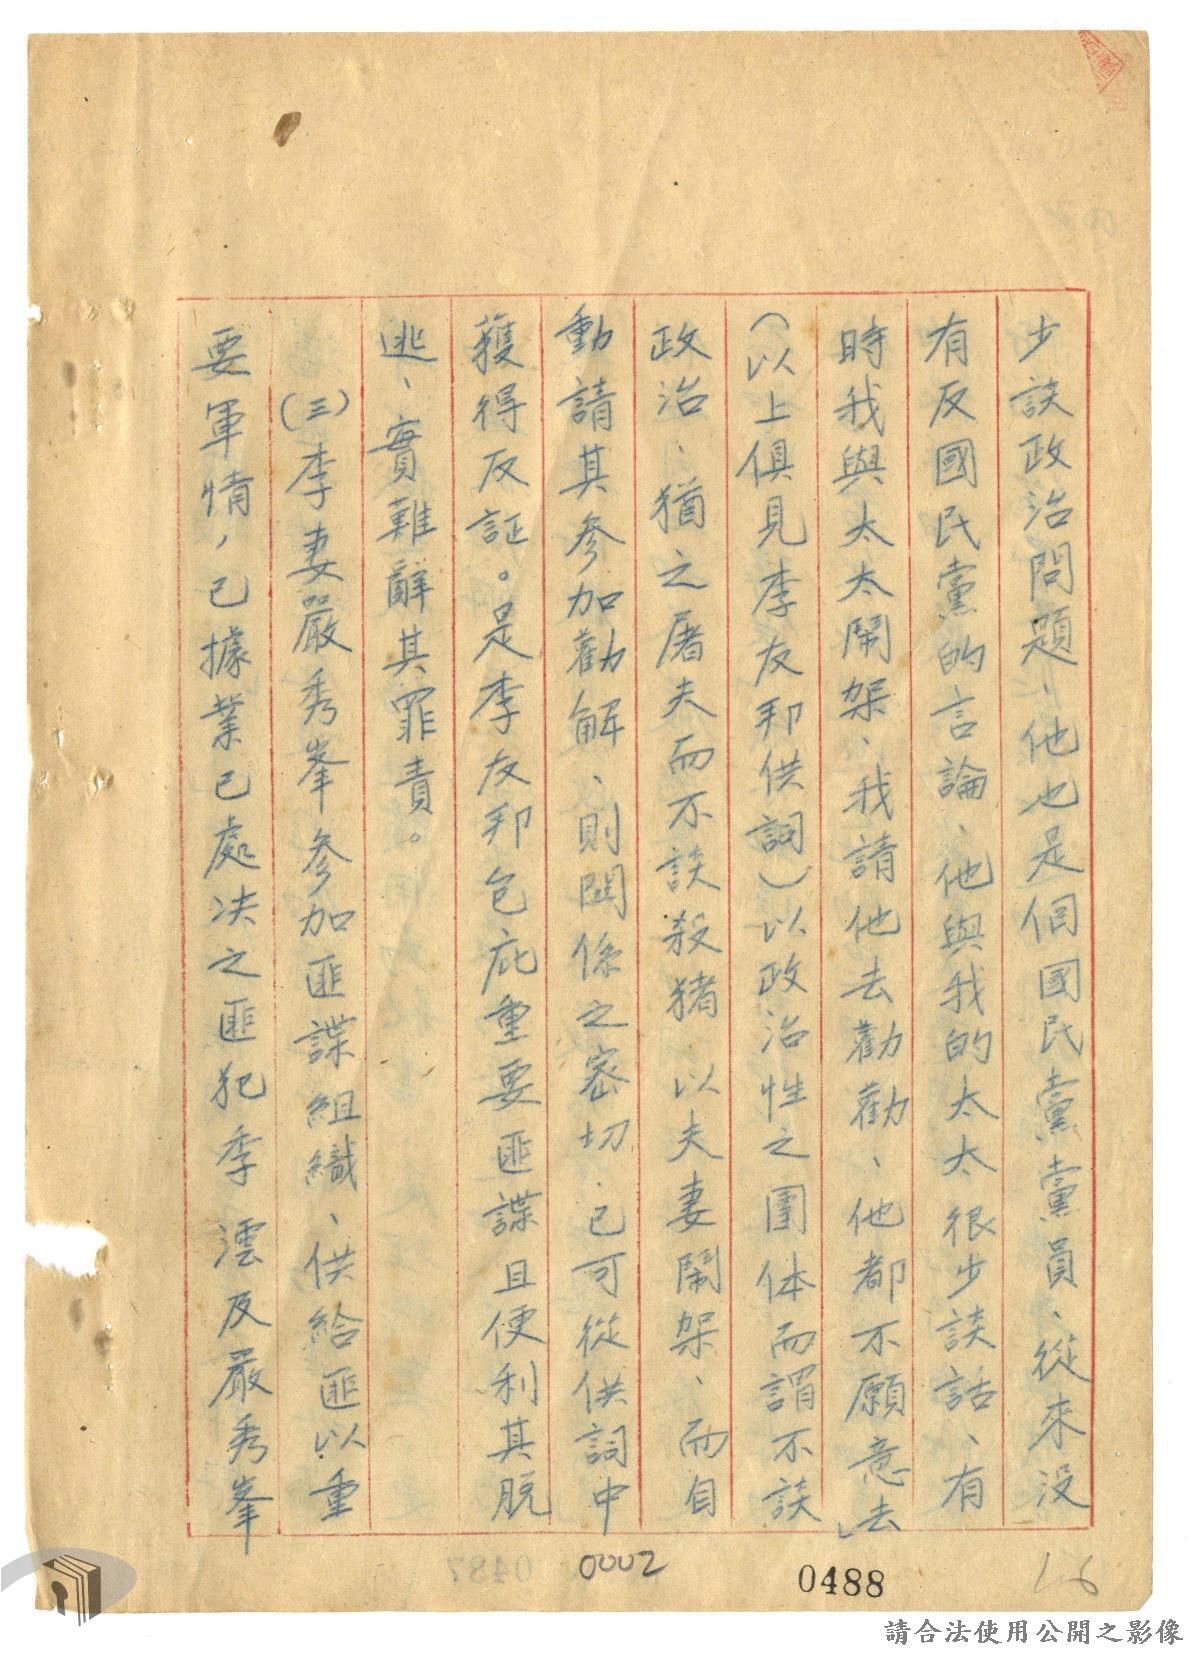 少談政治問題、他也是個國民黨黨員、從來沒
有反國民黨的言論、他與我的太太很少談話、有
時我與太太鬧架、我請他去勸勸、他都不願意去」
(以上俱見李友邦供詞)以政治性之團体而謂不談
政治、猶之屠夫而不談殺猪、以夫妻鬧架、而自
動請其參加勸解、則関係之密切、已可從供詞中
獲得反証。是李友邦包庇重要匪諜且便利其脫
逃、實難辭其罪責。
(三)李妻嚴秀峯參加匪諜組織、供給匪以重
要軍情，已據業已處决之匪犯季澐及嚴秀峯
0002
0488
16
請合法使用公開之影像